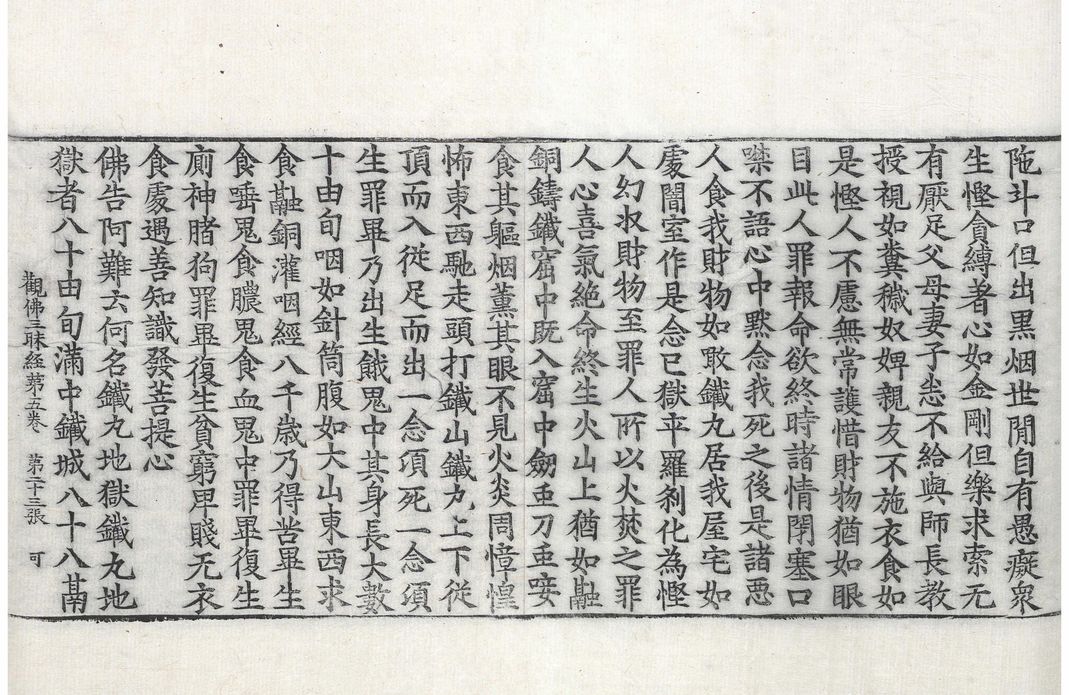 陁斗口但出黒烟世閒自有愚癡衆
生慳貪縛著心如金剛但樂求索无
有厭足父母妻子悉不給與師長教
授視如糞穢奴婢親友不施衣食如
是慳人不慮無常護惜財物猶如眼
目此人罪報命欲終時諸情閇塞口
噤不語心中黙念我死之後是諸惡
人食我財物如敢鐵丸居我屋宅如
處闇室作是念已獄卒羅刹化為慳
人幻収財物至罪人所以火焚之罪
人心喜氣絶命終生火山上猶如融
銅鑄鐵窟中旣入窟中劒䖝刀䖝唼
食其軀烟薫其眼不見火炎周慞惶
怖東西馳走頭打鐵山鐵丸上下從
頂而入從足而出一念須死一念須
生罪畢乃出生餓鬼中其身長大數
十由旬咽如針筒腹如大山東西求
食融銅灌咽經八千歳乃得苦畢生
食唾鬼食膿鬼食血鬼中罪畢復生
廁神豬狗罪畢復生貧窮卑賤无衣
食處遇善知識發菩提心
佛告阿難云何名鐵丸地獄鐵丸地
獄者八十由旬滿中鐵城八十八鬲
觀佛三昧経苐五卷 苐二十三張 可